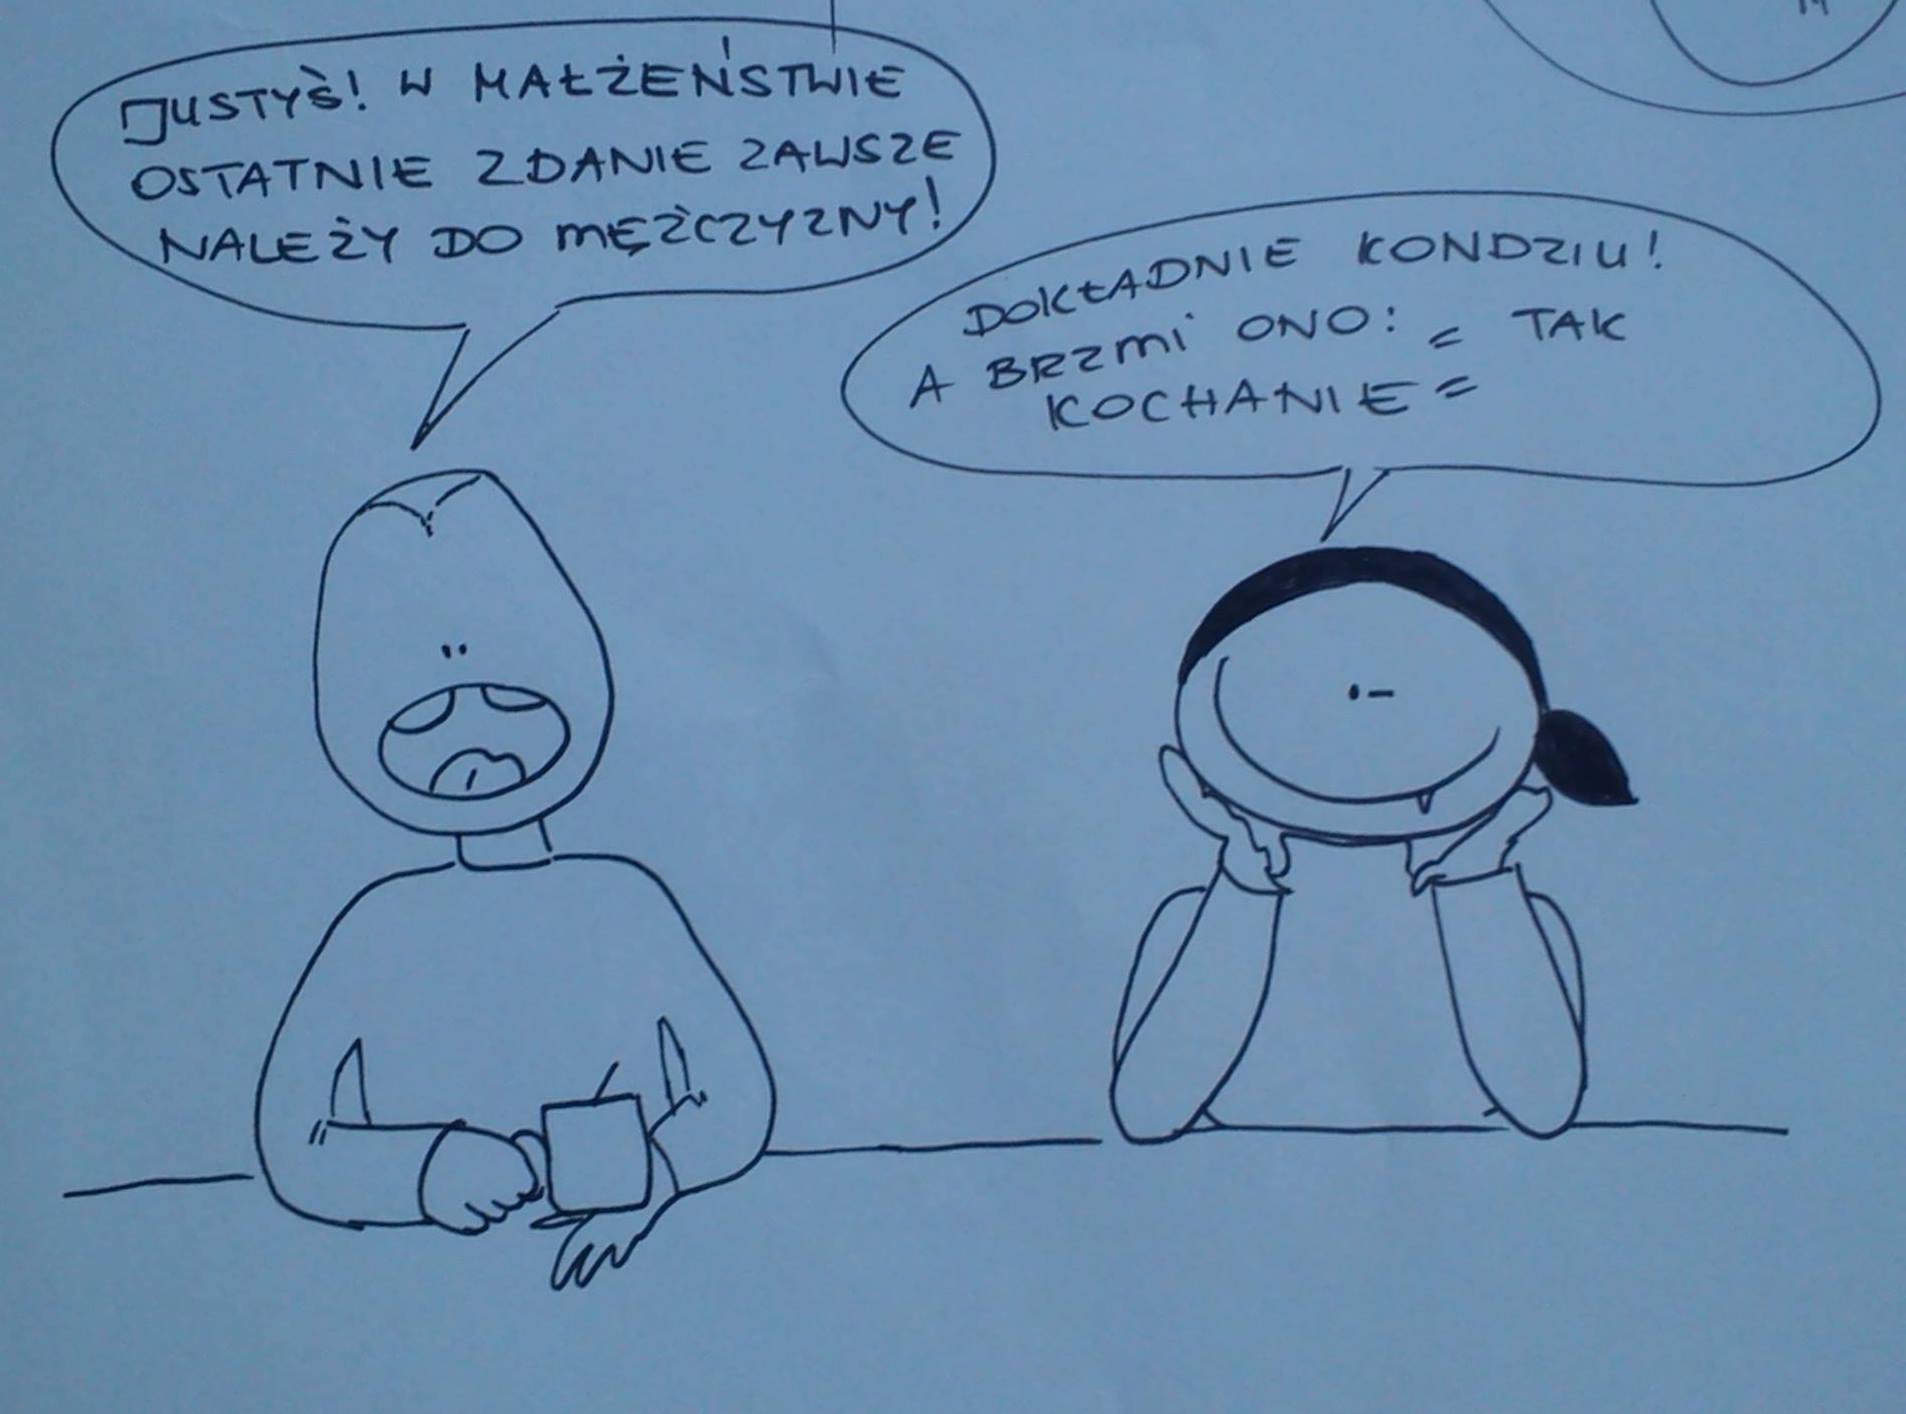 JUSTYŚ! W MAŁŻEŃSTWIE
OSTATNIE ZDANIE ZAWSZE
NALEŻY DO MĘŻCZYZNY!
DOKŁADNIE KONDZIU!
A BRZMI ONO: = TAK
KOCHANIE =